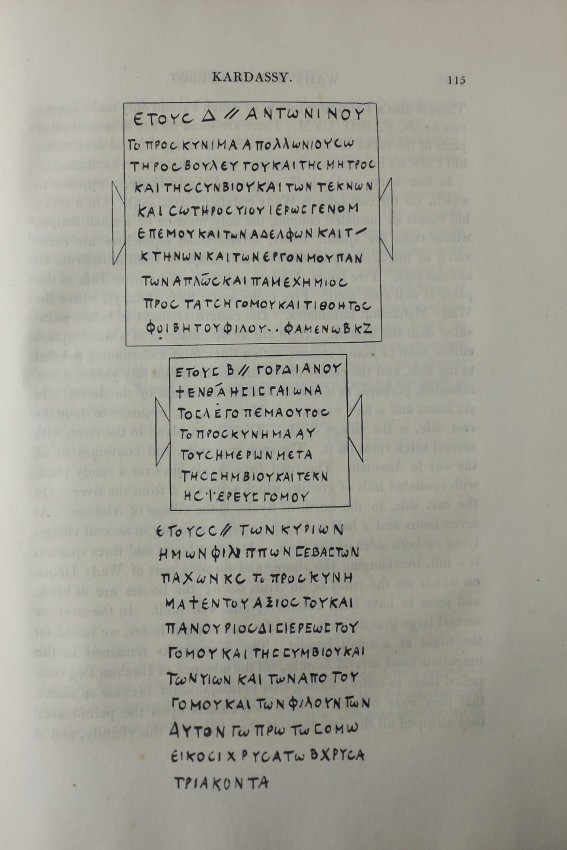 KARDASSY.
115
ΕΤΟΥϹ Δ // ΑΝΤωΝΙΝΟΥ
Το ΠΡΟϹΚΥΝΙΜΑ ΑΠΟΛΛωΝΙΟΥϹω
ΤΗΡΟϹΒΟΥΛΕΥΤΟΥΚΑΙΤΗϹΜΗΤΡΟϹ
ΚΑΙΤΗϹϹΥΝΒΙΟΥΚΑΙΤωΝΤΕΚΝωΝ
ΚΑΙϹωΤΗΡΟϹΥΙΟΥΙΕΡωϹΓΕΝΟΜ
ΕΠΕΜΟΥΚΑΙΤωΝΑΔΕΛΦωΝΚΑΙΤ
ΚΤΗΝωΝΚΑΙΤωΝΕΡΓΟΝΜΟΥΠΑΝ
ΤωΝΑΠΛωϹΚΑΙΠΑΜΕΧΗΜΙΟϹ
ΠΡΟϹΤΑΤϹΗΓΟΜΟΥΚΑΙΤΙΘΟΗΤΟϹ
ΦΟΙΒΗΤΟΥΦΙΛΟΥ.. ΦΑΜΕΝωΒΚΖ
ΕΤΟΥϹ Β // ΓΟΡΔΙΑΝΟΥ
ΤΟϹΛΕΓΟΠΕΜΑΟΥΤΟϹ
ΤοΠΡΟϹΚΥΝΗΜΑΑΥ
ΤΟΥϹΗΜΕΡωΝΜΕΤΑ
ΤΗϹϹΗΜΒΙΟΥΚΑΙΤΕΚΝ
ΕΤΟΥϹϹ // ΤωΝΚΥΡΙωΝ
ΗΜωΝΦΙΛΙΠΠωΝϹΕΒΑϹΤωΝ
ΠΑΧωΝΚϹ Το ΠΡΟϹΚΥΝΗ
ΜΑ†ΕΝΤΟΥΑΞΙΟϹΤΟΥΚΑΙ
ΠΑΝΟΥΡΙΟϹΔΙϹΙΕΡΕωϹΤΟΥ
ΓΟΜΟΥΚΑΙΤΗϹϹΥΜΒΙΟΥΚΑΙ
ΤωΝΥΙωΝ ΚΑΙ ΤωΝΑΠΟ ΤΟΥ
ΓΟΜΟΥΚΑΙΤωΝΦΙΛΟΥΝΤωΝ
ΑΥΤΟΝ ΓωΠΡω ΤωϹΟΜω
ΕΙΚΟϹΙΧΡΥϹΑΤωΒΧΡΥϹΑ
ΤΡΙΑΚΟΝΤΑ